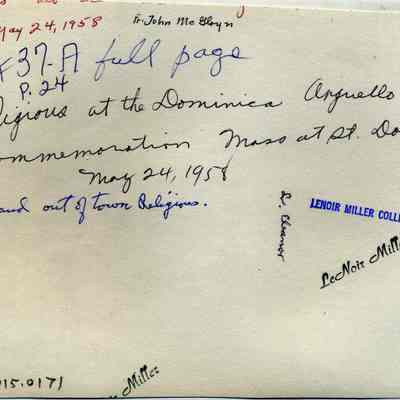 May 24, 1958
Fr. John McGloyn
#37-A full page
P. 24
ligious at the Dominica Arguello
ommemoration Mass at St. Do
May 24, 1958
and out of town Religious.
LENOIR MILLER COLLE
LeNoir Mill
Miller
015.0171